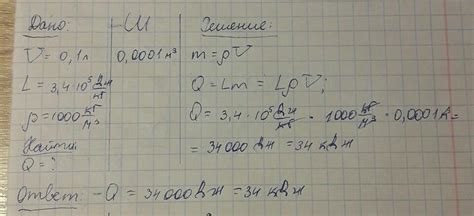 Дано: СИ Решение:
V = 0,1л 0,0001 м³ m = ρV
L = 3,4·10⁵ Дж/кг Q = Lm = LρV;
ρ = 1000 кг/м³ Q = 3,4·10⁵ Дж/кг · 1000 кг/м³ · 0,0001 м³ =
Найти = 34000 Дж = 34 кДж
Q = ?
Ответ: – Q = 34000 Дж = 34 кДж